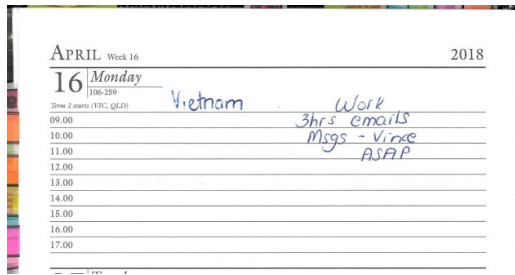 APRIL Week 16 2018
16 Monday
106-259
Term 2 starts (VIC, QLD)
Vietnam Work
09.00 3hrs emails
10.00 Msgs - Vince
11.00 ASAP
12.00
13.00
14.00
15.00
16.00
17.00